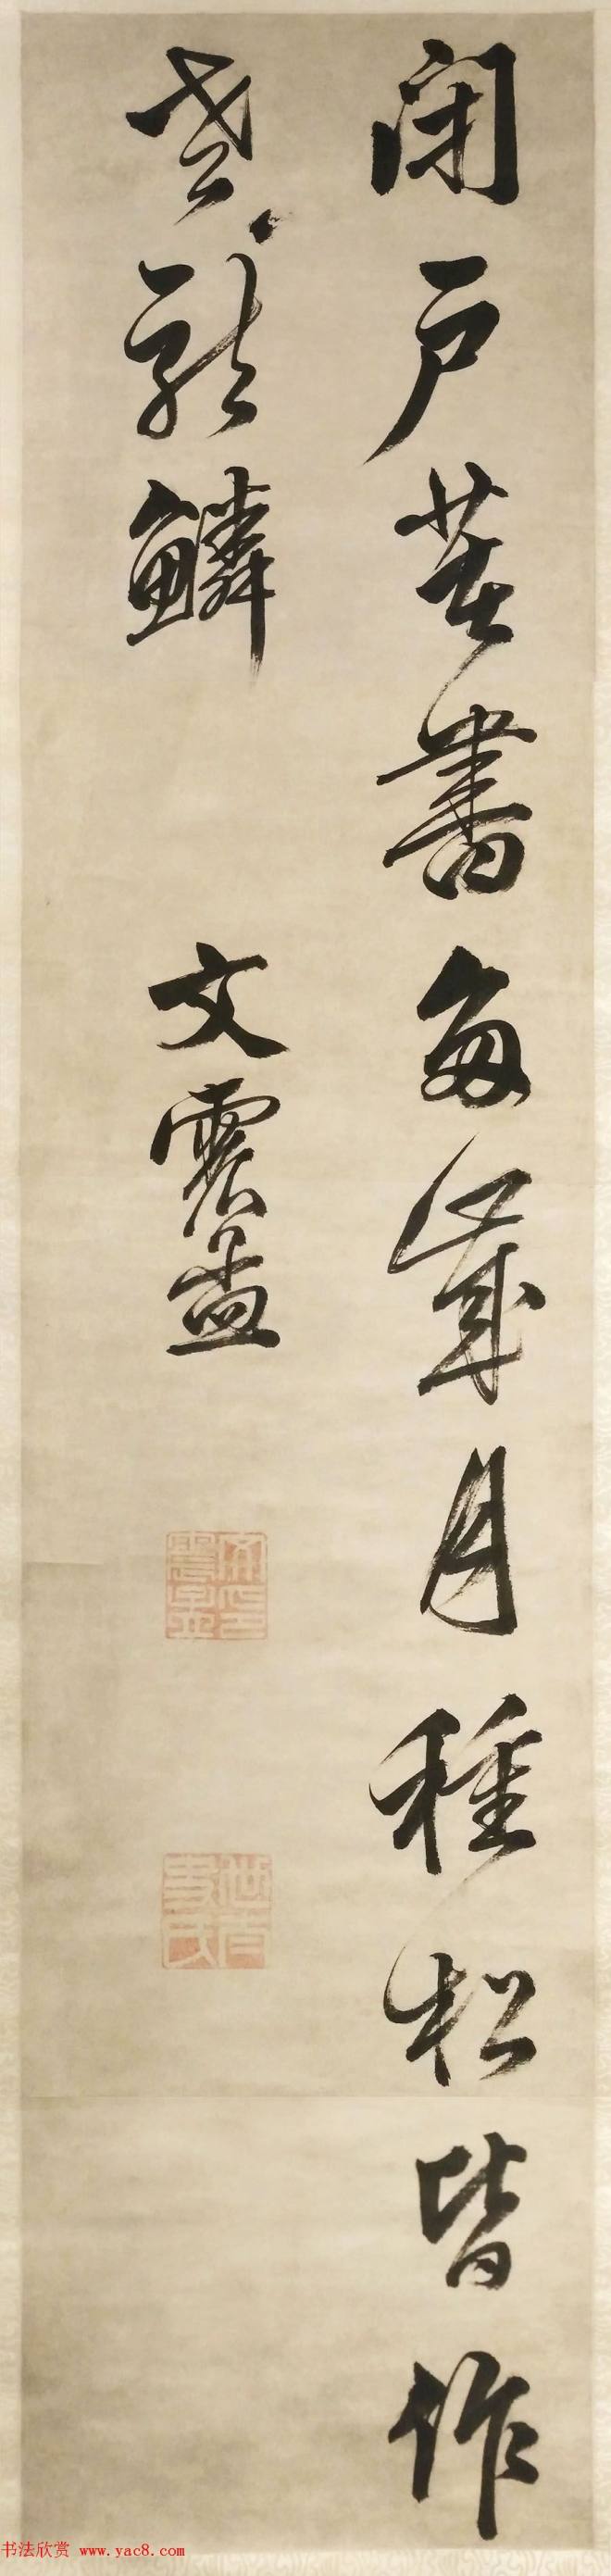 閉戶著書多歲月種松皆作
老龍鱗
文震孟
书法欣赏 www.yac8.com